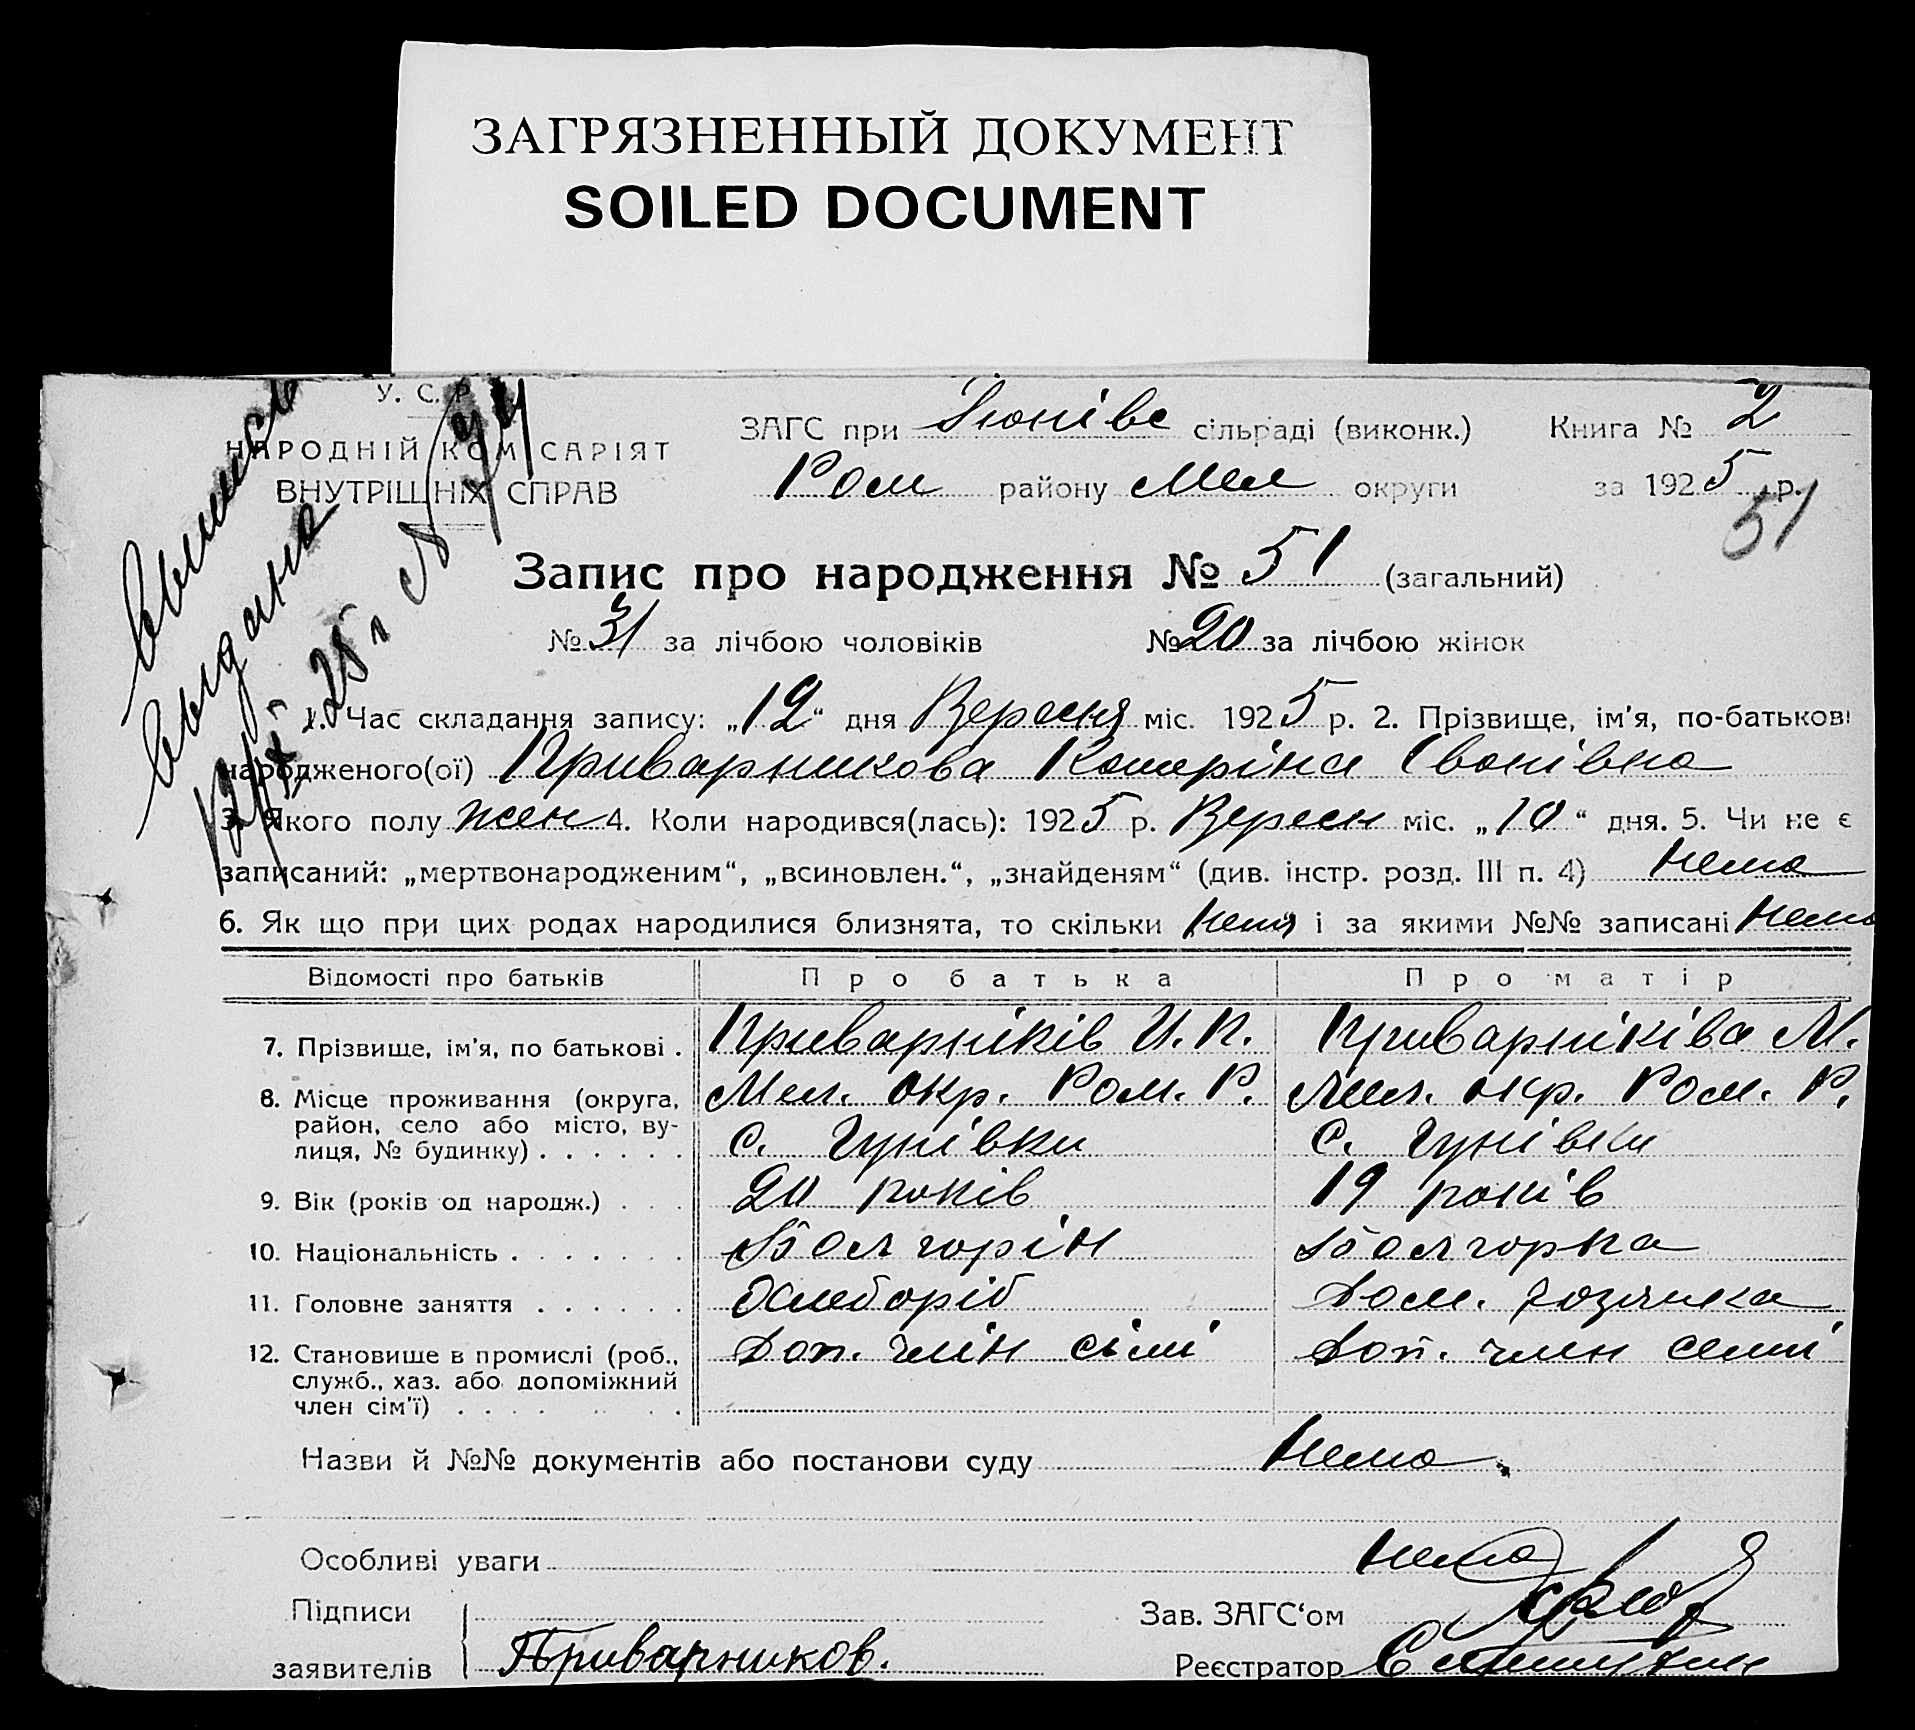 ЗАГРЯЗНЕННЫЙ ДОКУМЕНТ
SOILED DOCUMENT
У. С. Р.
НАРОДНІЙ КОМІСАРІЯТ
ВНУТРІШНІХ СПРАВ
ЗАГС при сільраді (виконк.) Книга № 2
Ром району Мел округи за 1925 р.
51
Выпись
выдана
12/IX 25 г. №
Запис про народження № 51 (загальний)
№ 31 за лічбою чоловіків № 20 за лічбою жінок
1. Час складання запису: „12“ дня Вересня міс. 1925 р. 2. Прізвище, ім'я, по-батькові
народженого(ої) Приварникова Катеріна Іванівна
3. Якого полу жен 4. Коли народився(лась): 1925 р. Вересн міс. „10“ дня. 5. Чи не є
записаний: „мертвонародженим“, „всиновлен.“, „знайденям“ (див. інстр. розд. III п. 4) Нема
6. Як що при цих родах народилися близнята, то скільки Нема і за якими №№ записані Нема
Відомості про батьків Про батька Про матір
7. Прізвище, ім'я, по батькові . Приварніків И. П. Приварніківа М.
8. Місце проживання (округа, Мел. окр. Ром. Р. Мел. окр. Ром. Р.
район, село або місто, ву-
лиця, № будинку) . . . . . . с. Гунівки с. Гунівки
9. Вік (років од народж.) . . . 20 років 19 років
10. Національність . . . . . . . Болгорін Болгорка
11. Головне заняття . . . . . . Хлеборіб Дом. хозяика
12. Становище в промислі (роб., Доп. член сімі Доп. член семиі
служб., хаз. або допоміжний
член сім'ї) . . . . . . . .
Назви й №№ документів або постанови суду Нема.
Особливі уваги Нема
Підписи Зав. ЗАГС‘ом
заявителів Приварников. Реєстратор